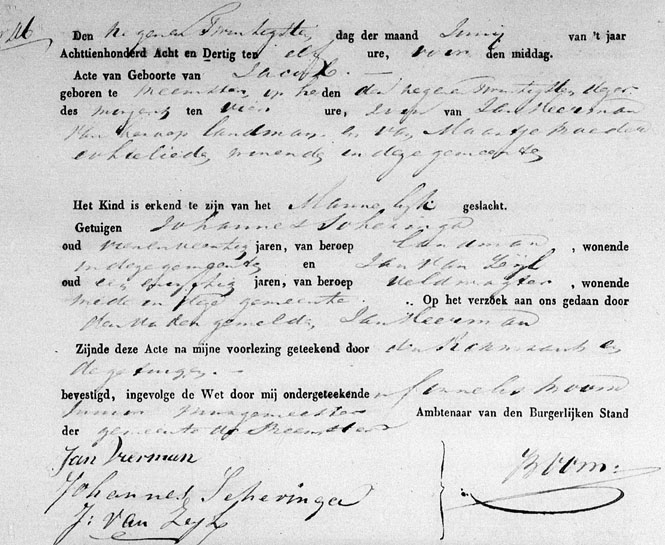 Den negenen Twintigsten dag der maand Junij van 't jaar
Achttienhonderd Acht en Dertig ten elf ure, voor den middag.
Acte van Geboorte van Jacob. —
geboren te Beemster op heden den negen twintigsten dezer
des morgens ten vier ure, Zoon van Jan Veerman
van beroep landman en van Maartje
echtelieden wonende in deze gemeente
Het Kind is erkend te zijn van het Mannelijk geslacht.
Getuigen Johannes Scheringa
oud jaren, van beroep Landman, wonende
in deze gemeente en Jan Van Zijl
oud jaren, van beroep veldwagter, wonende
mede in deze gemeente. Op het verzoek aan ons gedaan door
den Vader gemelde Jan Veerman
Zijnde deze Acte na mijne voorlezing geteekend door den Comparant en
de getuigen. —
bevestigd, ingevolge de Wet door mij ondergeteekende Cornelis Boom
Junior Burgemeester Ambtenaar van den Burgerlijken Stand
der gemeente de Beemster
Jan Veerman
Johannes Scheringa
J: van Zijl
Boom: